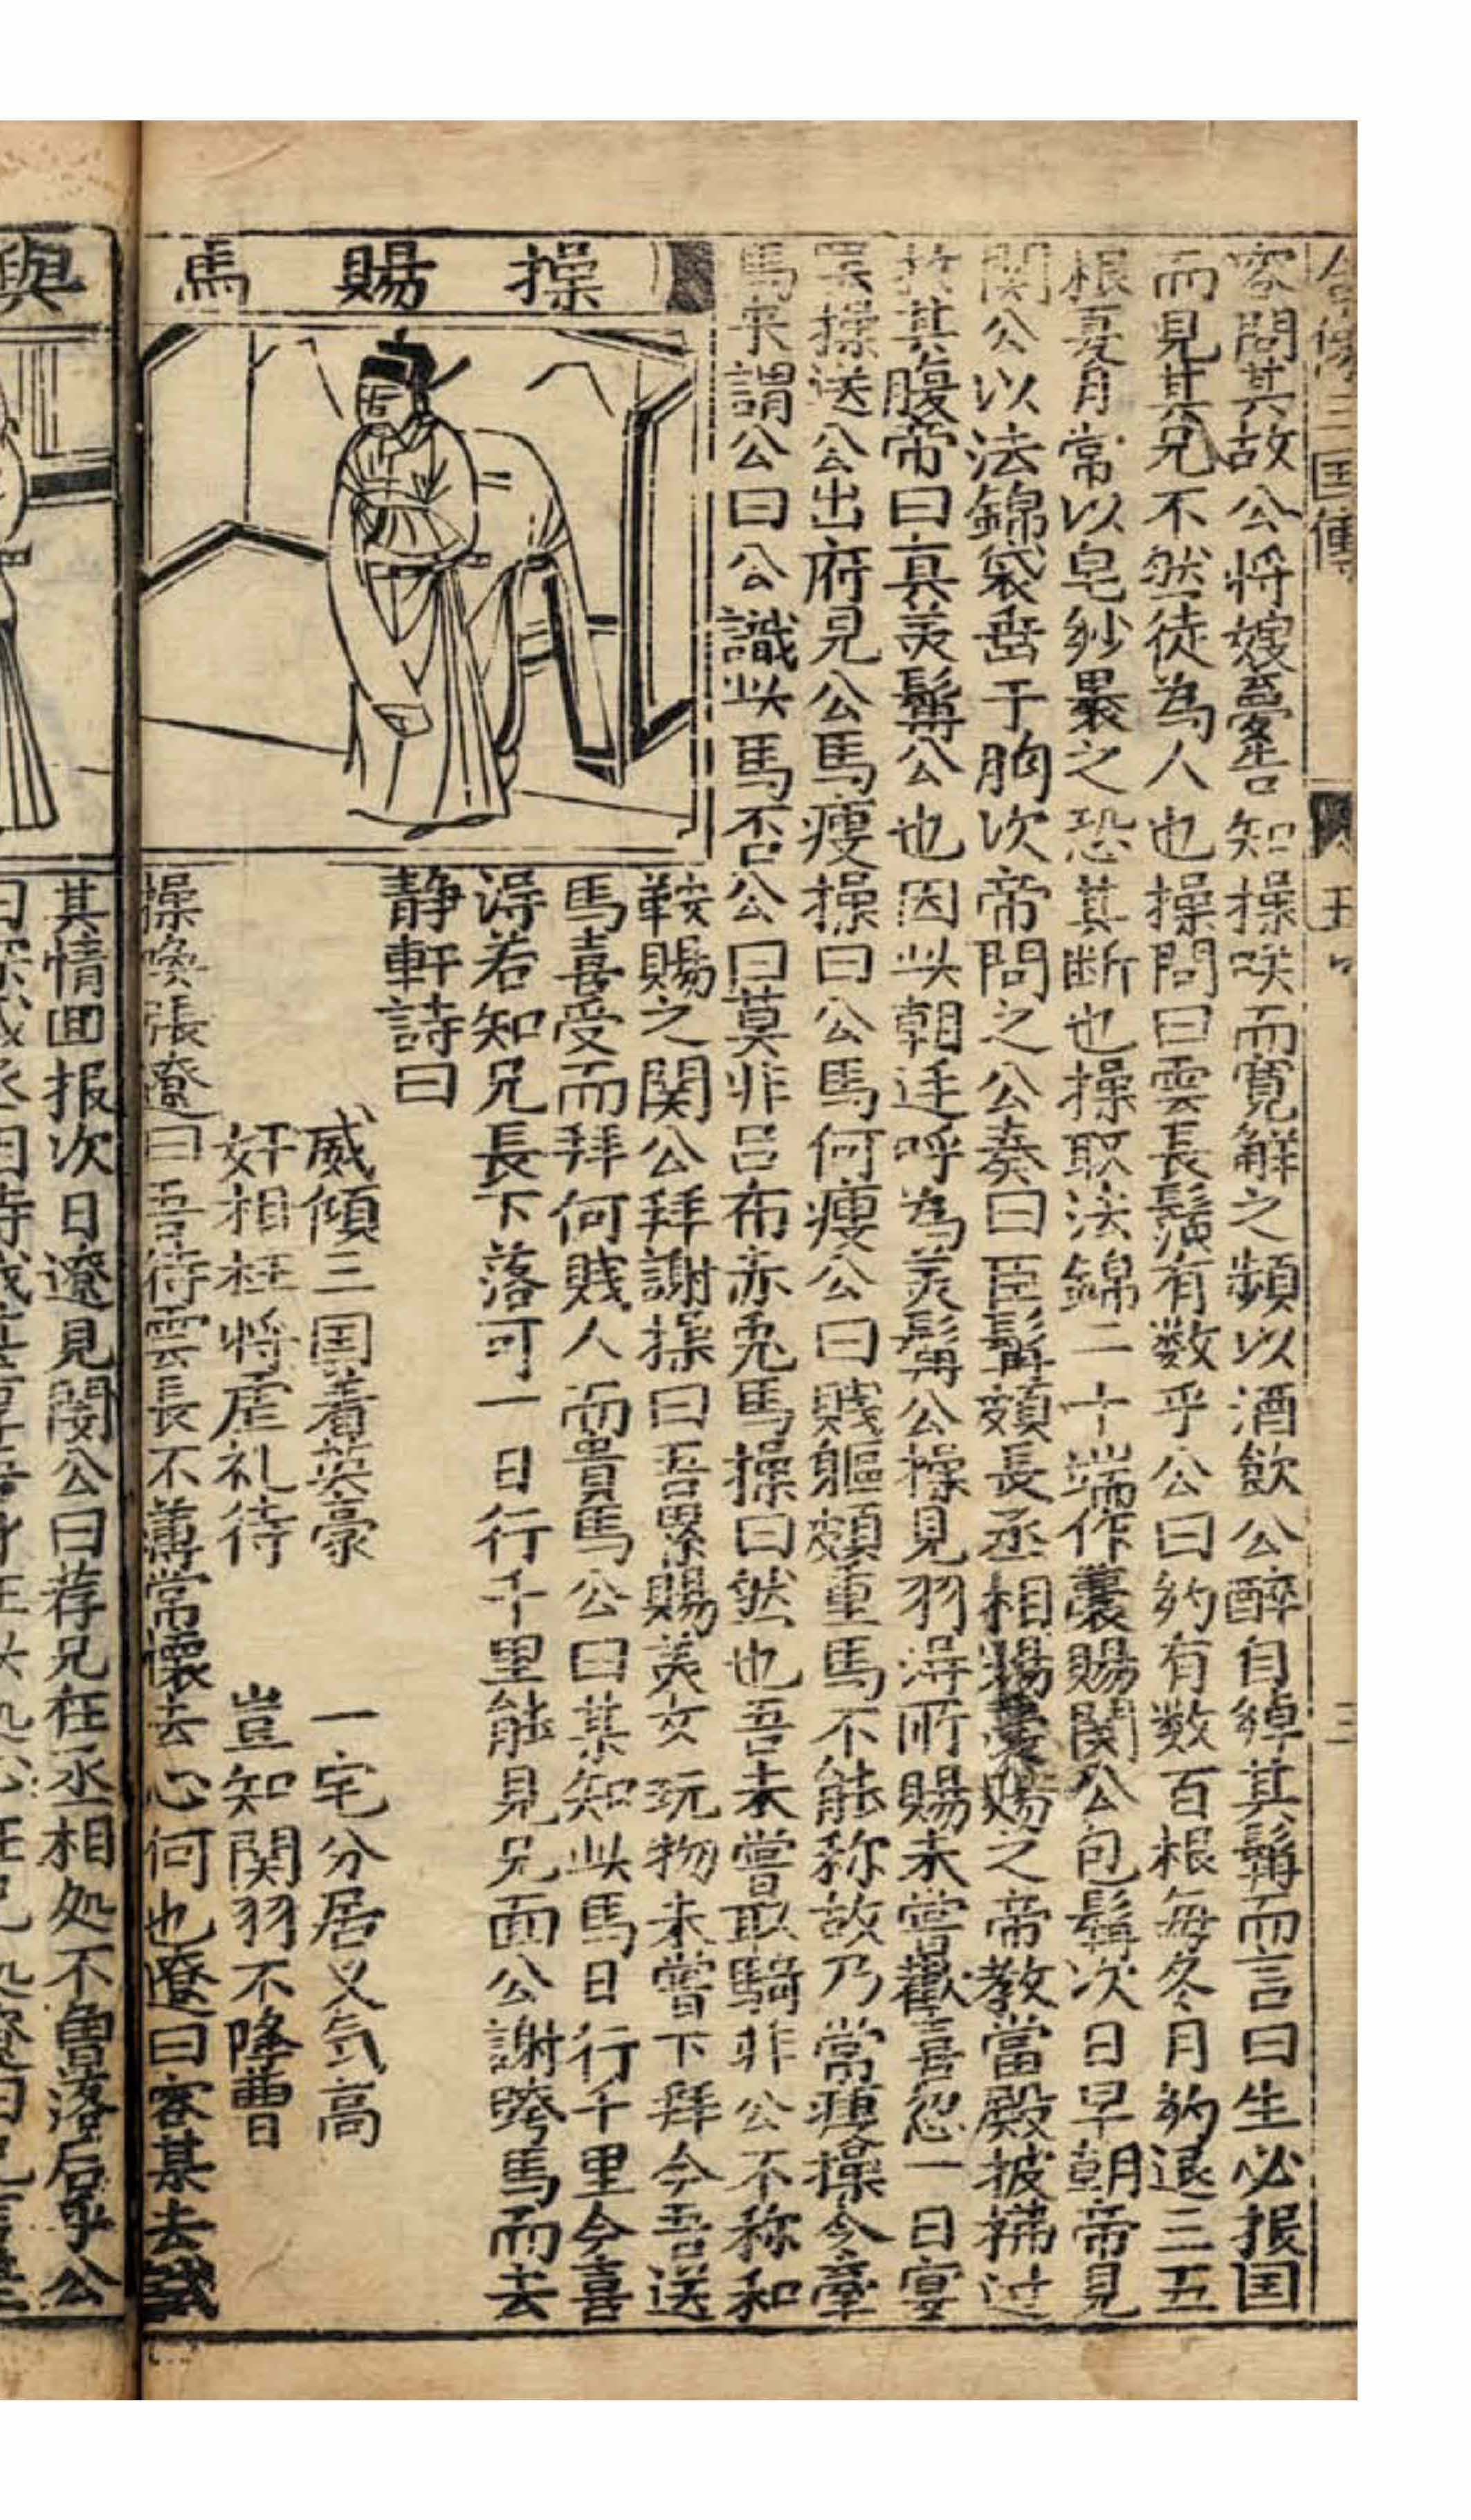 全像三国傳 五 三
容問其故公将嫂夢告知操咲而寛觧之頻以酒飲公醉自綽其髯而言曰生必报国
而見其兄不然徒為人也操問曰雲長鬚有数乎公曰約有数百根每冬月約退三五
根夏月常以皂紗裹之恐其断也操取法錦二十端作囊賜関公包髯次日早朝帝見
関公以法錦袋垂于胸次帝問之公奏曰臣髯頗長丞相賜囊賜之帝教當殿披拂过
於其腹帝曰真羙髯公也因此朝廷呼為羙髯公操見羽得所賜未嘗歡喜忽一日宴
罢操送公出府見公馬瘦操曰公馬何瘦公曰賤軀頗重馬不能称故乃常瘦操令牽
馬来謂公曰公識此馬否公曰莫非吕布赤兎馬操曰然也吾未嘗取騎非公不称和
操賜馬
鞍賜之関公拜謝操曰吾累賜羙女玩物未嘗下拜今吾送
馬喜受而拜何賎人而貴馬公曰某知此馬日行千里今喜
得若知兄長下落可一日行千里能見兄面公謝跨馬而去
静軒詩曰
威傾三国着英豪 一宅分居义気高
奸相枉将虚礼待 豈知関羽不降曹
操喚張遼曰吾待雲長不薄常懷去心何也遼曰容某去試
與
其情囬报次日遼見関公曰荐兄在丞相処不曾落后乎公